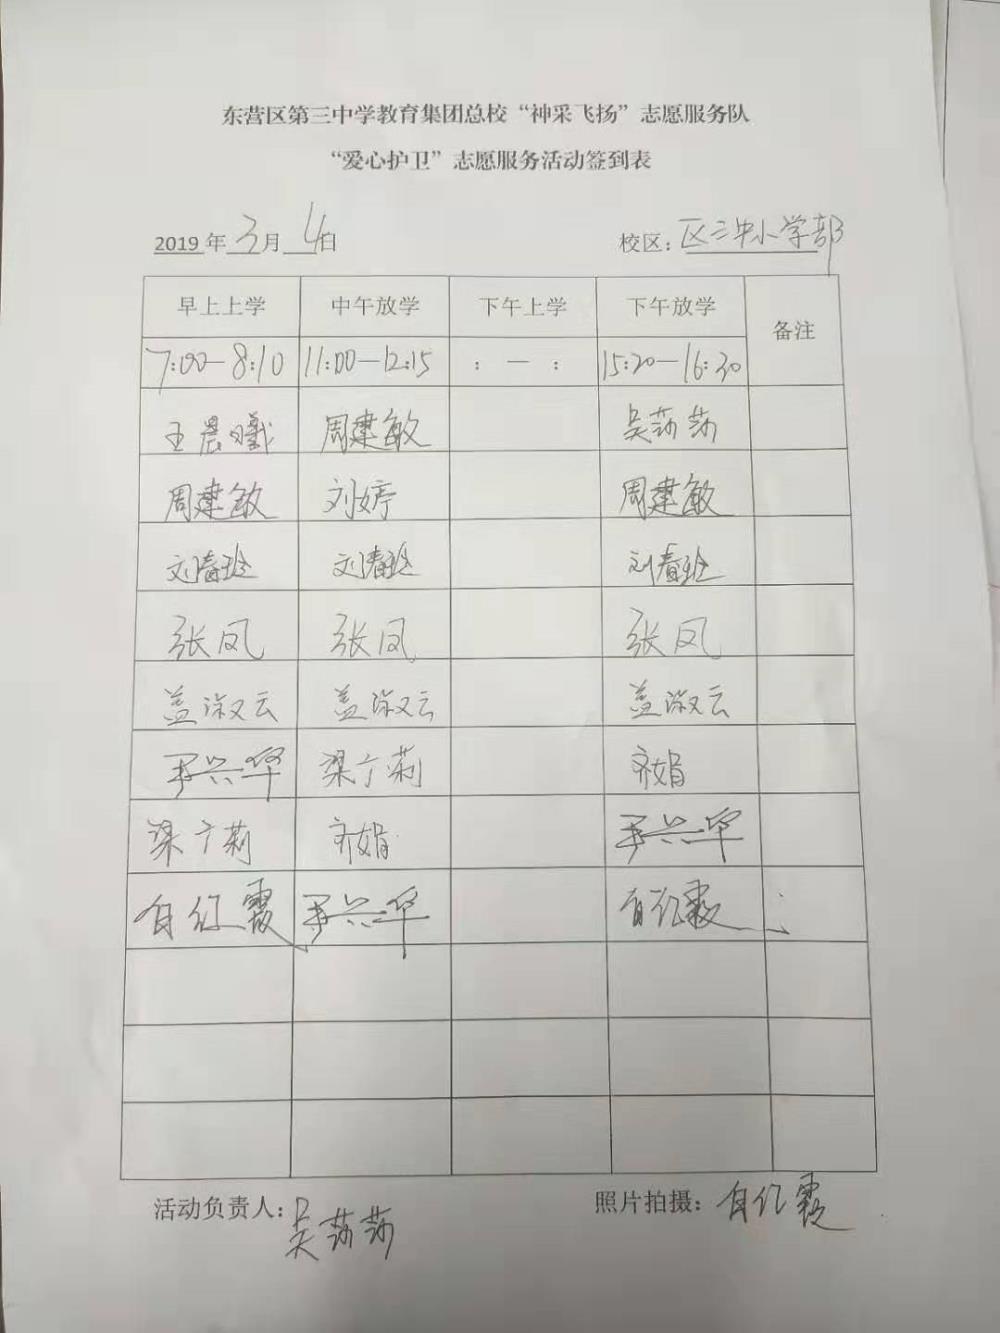 东营区第三中学教育集团总校“神采飞扬”志愿服务队
“爱心护卫”志愿服务活动签到表
2019 年 3 月 4 日 校区：区三中小学部
早上上学 中午放学 下午上学 下午放学 备注
7:00—8:10 11:00—12:15 : — : 15:20—16:30
王晨曦 周建敏 吴莎莎
周建敏 刘婷 周建敏
刘春玲 刘春玲 刘春玲
张凤 张凤 张凤
盖淑云 盖淑云 盖淑云
兴华 梁广莉 齐娟
梁广莉 齐娟 兴华
自红霞 兴华 自红霞
活动负责人：吴莎莎 照片拍摄：自红霞